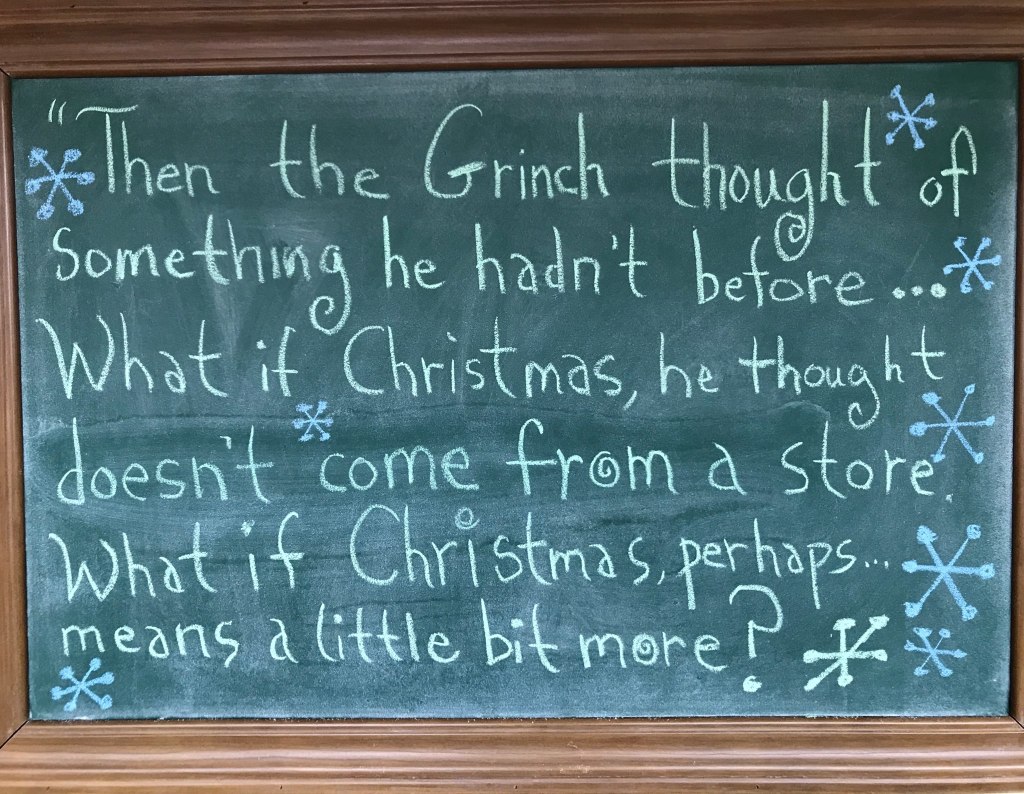 "Then the Grinch thought of
something he hadn't before...
What if Christmas, he thought
doesn't come from a store.
What if Christmas, perhaps...
means a little bit more?